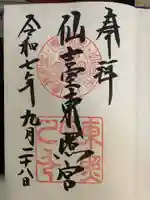 奉拝
仙臺東照宮
令和七年九月二十八日